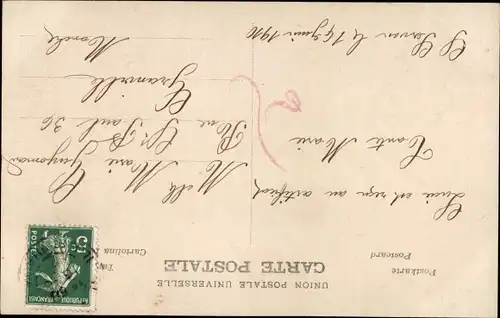 UNION POSTALE UNIVERSELLE
CARTE POSTALE
Postkarte
Postcard
Cartolina
St Servan le 14 Juin 1910
Lucie est reçu au certificat
Tante Marie
Melle Marie
Rue St Paul 36
Granville
Manche
POSTES
REPUBLIQUE FRANÇAISE